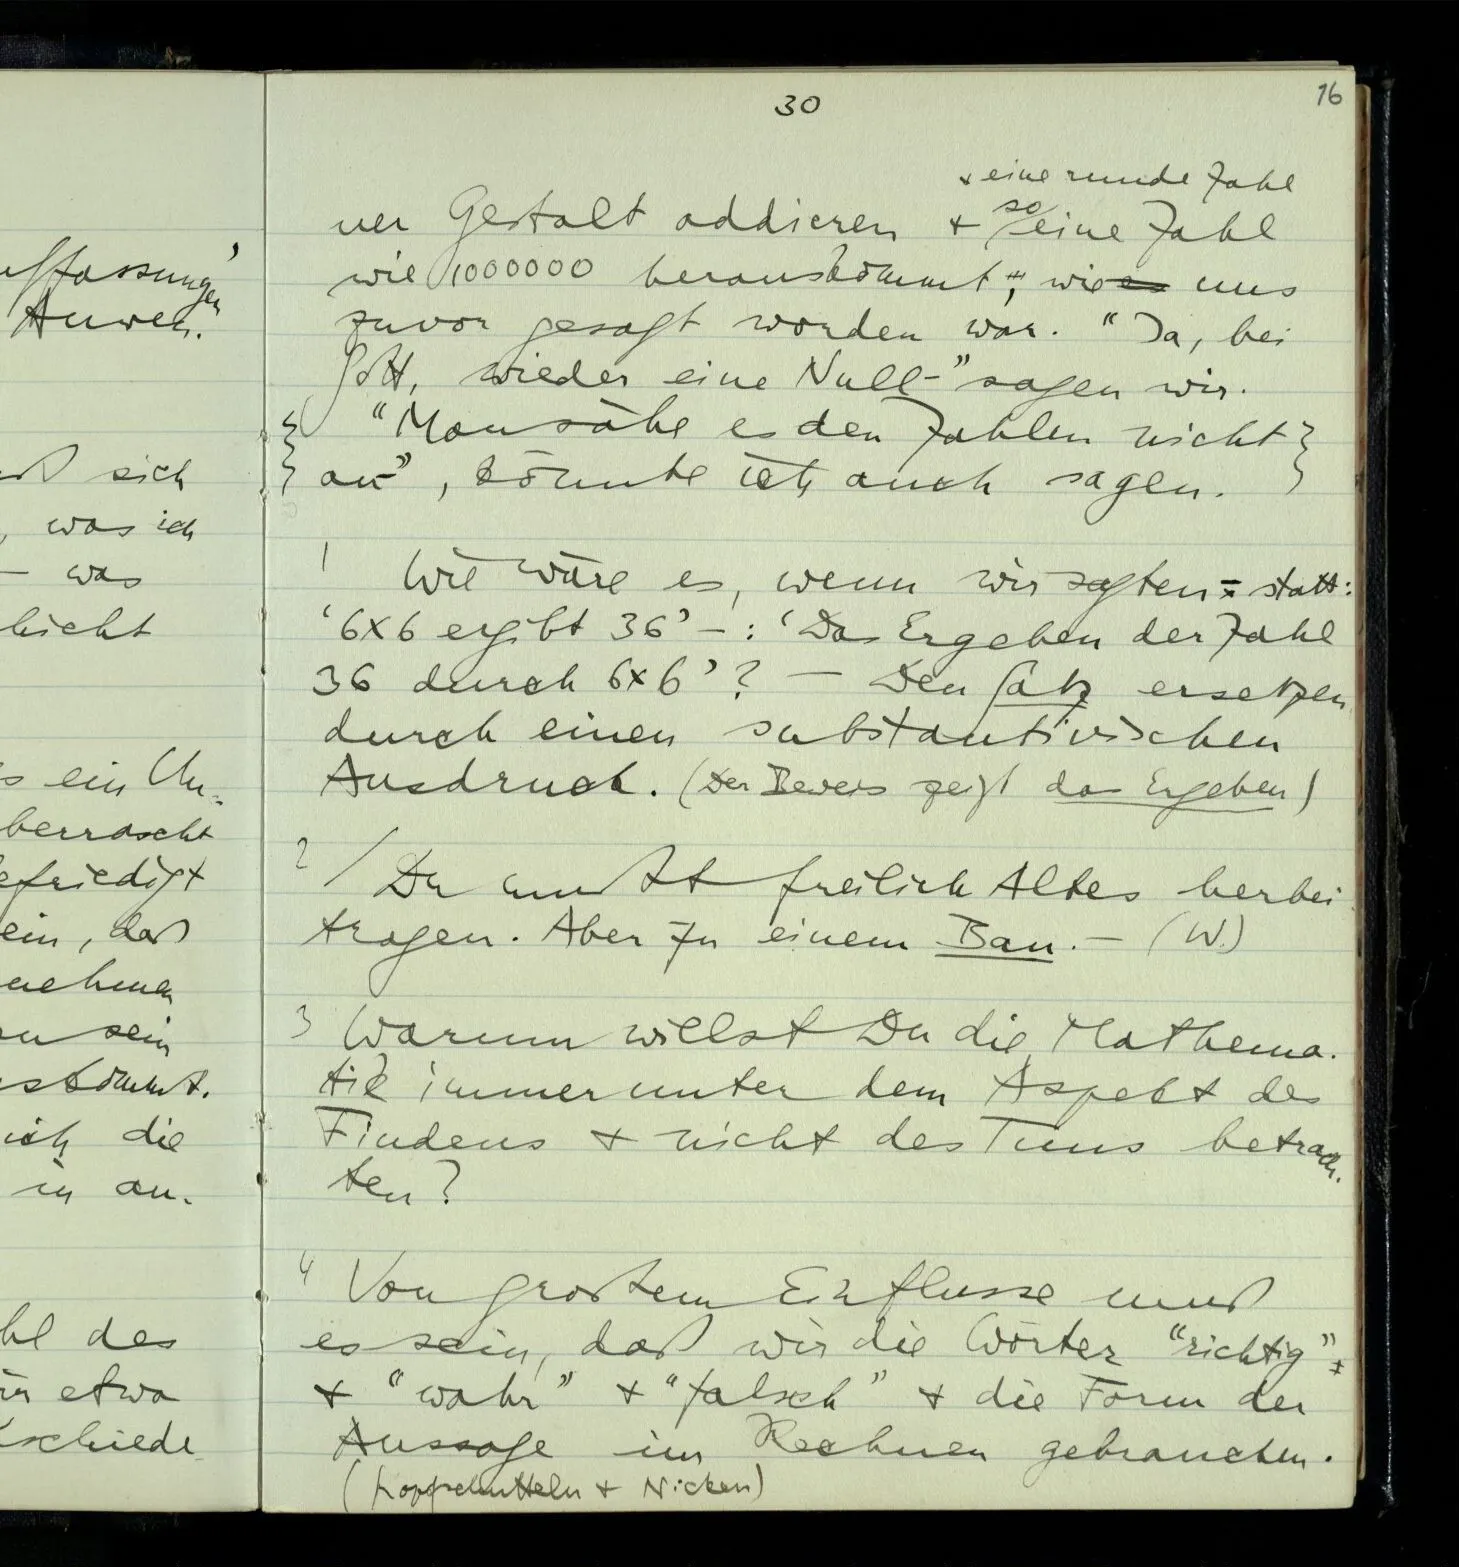 uffassungen"
Anwen.
sich
, was ich
– was
nicht
s ein Un-
berrascht
efriedigt
ein, daß
nehmen
zu sein
skömmt.
ich die
in an-
hl des
wir etwa
schiede
30
16
+ eine runde Zahl
ner Gestalt addieren + so eine Zahl
wie 1000000 herauskömmt, wie es uns
zuvor gesagt worden war. "Ja, bei
Gott, wieder eine Null –" sagen wir.
"Man sähe es den Zahlen nicht
an", könnte ich auch sagen.
1 Wie wäre es, wenn wir sagten – statt:
'6x6 ergibt 36' – : 'Das Ergeben der Zahl
36 durch 6x6'? – Den Satz ersetzen
durch einen substantivischen
Ausdruck. (Der Beweis zeigt das Ergeben)
2 / Du mußt freilich Altes herbei
tragen. Aber zu einem Bau. – (W.)
3 Warum willst Du die Mathema-
tik immer unter dem Aspekt des
Findens + nicht des Tuns betrach-
ten?
4 Von großem Einflusse muß
es sein, daß wir die Wörter "richtig"
+ "wahr" + "falsch" + die Form der
Aussage im Rechnen gebrauchen.
(Kopfschütteln + Nicken)